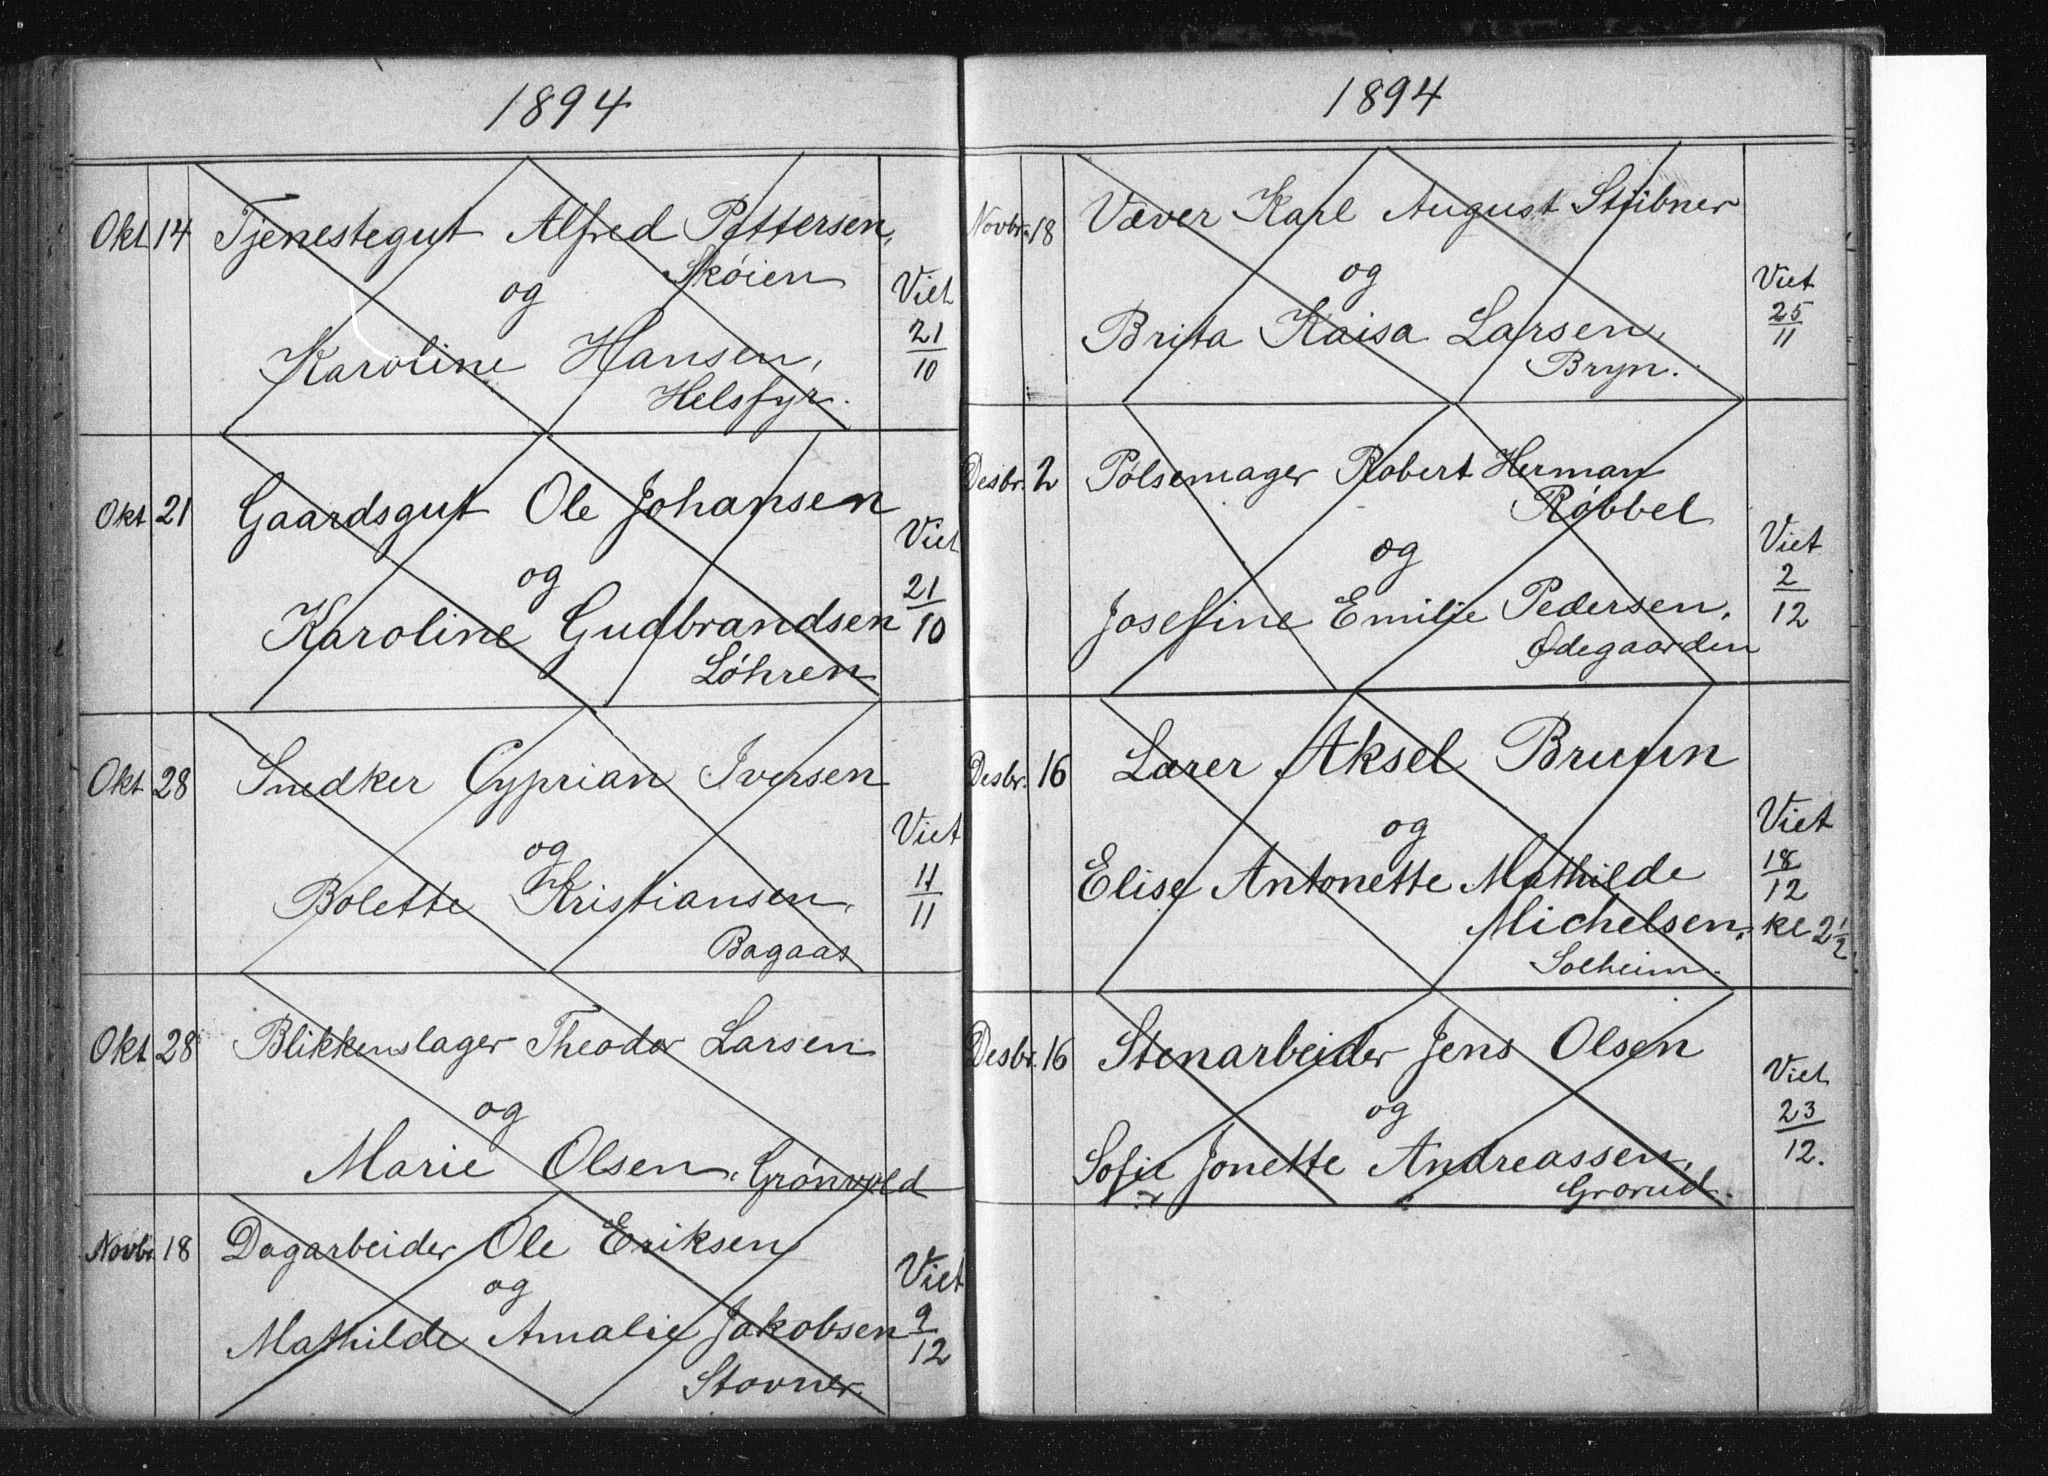 1894
Okt 14 Tjenestegut Alfred Pettersen,
Skóien
og
Viet
Karoline Hansen, 21/10
Helsfyr.
Okt 21 Gaardsgut Ole Johansen
Viet
og
Karoline Gudbrandsen 21/10
Lóhren
Okt 28 Snedker Cyprian Iversen
Viet
og
Bolette Kristiansen, 11/11
Bagaas
Okt 28 Blikkenslager Theodor Larsen
og
Marie Olsen, Grónvold
Novbr. 18 Dagarbeider Ole Eriksen
Viet
og
Mathilde Amalie Jakobsen 9/12
Stovner.
1894
Novbr. 18 Væver Karl August Stübner
og
Viet
Brita Kaisa Larsen, 25/11
Bryn.
Desbr. 2 Pølsemager Robert Herman
Røbbel
og
Viet
Josefine Emilie Pedersen, 2/12
Ødegaarden
Desbr. 16 Lærer Aksel Bruun
og
Viet
Elise Antonette Mathilde 18/12
Michelsen, kl 2 1/2
Solheim.
Desbr. 16 Stenarbeider Jens Olsen
Viet
og
23/12.
Sofie Jonette Andreassen,
Grorud.